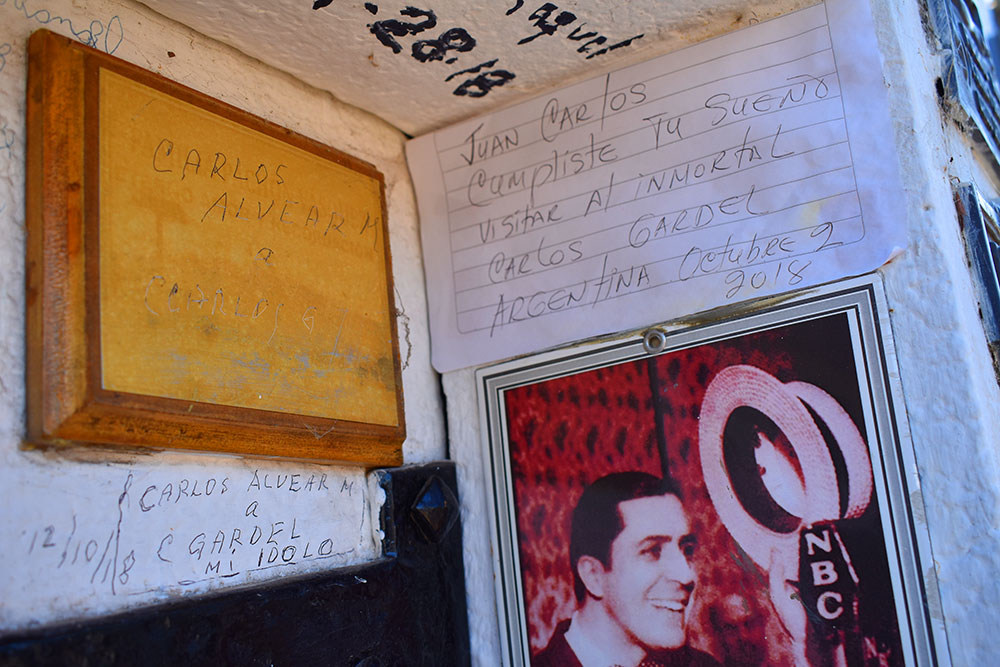 28.18
CARLOS
ALVEAR M
a
CARLOS G
JUAN CARLOS
CUMPLISTE TU SUEÑO
VISITAR Al INMORTAL
CARLOS GARDEL
ARGENTINA Octubre 2
2018
CARLOS ALVEAR M
a
C GARDEL
MI IDOLO
12/10/18
NBC